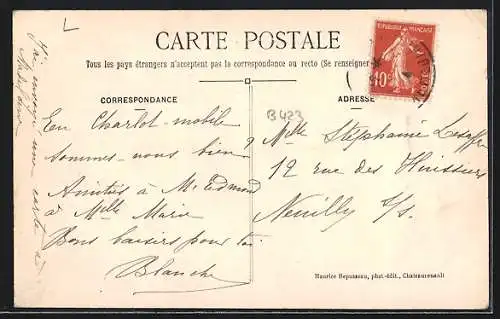 CARTE POSTALE
Tous les pays étrangers n'acceptent pas la correspondance au recto (Se renseigner
RÉPUBLIQUE FRANÇAISE
10c
CORRESPONDANCE
ADRESSE
B 423
J'ai envoyé une carte à
En Charlot-mobile
sommes-nous bien?
Amitiés à Mr Edmond
à Melle Marie
Bons baisers pour toi.
Blanche
Melle Stéphanie
12 rue des Huissiers
Neuilly s/s.
Maurice Repusseau, phot.-édit., Chateaurenault